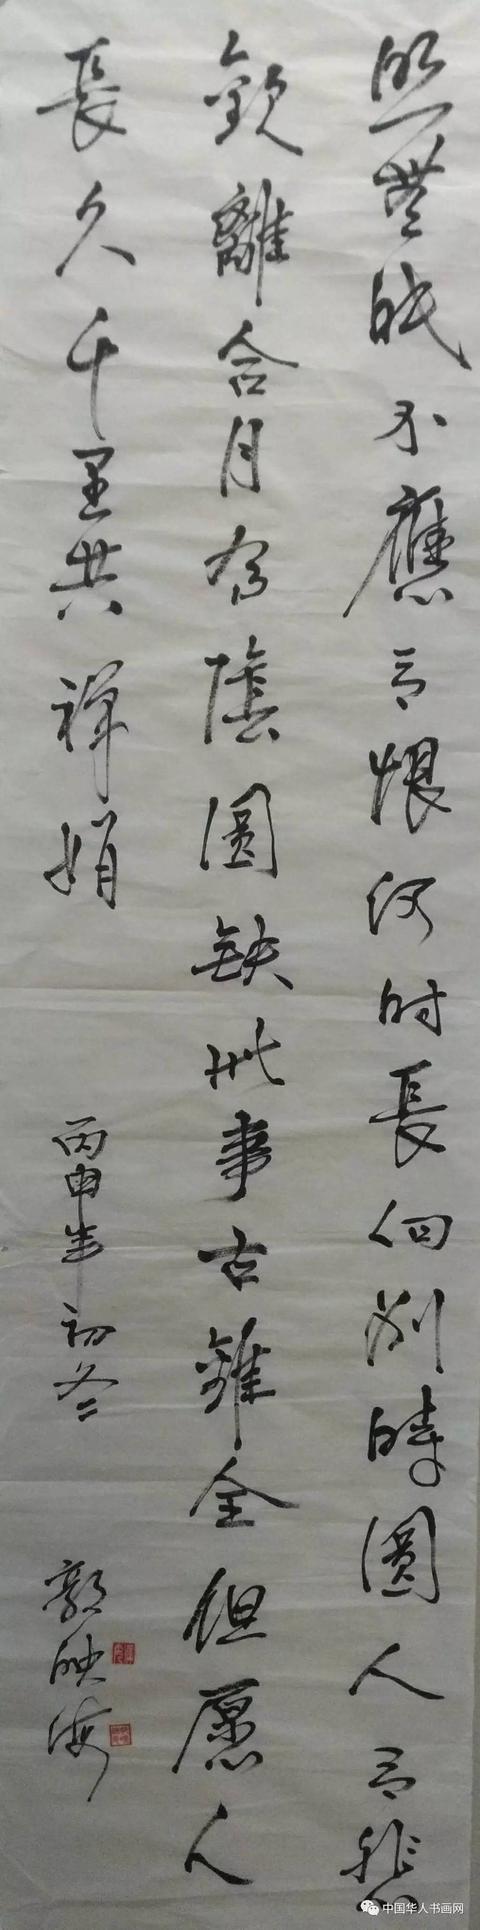 照無眠不應有恨何时長向别時圓人有悲
歡離合月有陰圓缺此事古難全但愿人
長久千里共禪娟
丙申年初冬
郭映海
中国华人书画网